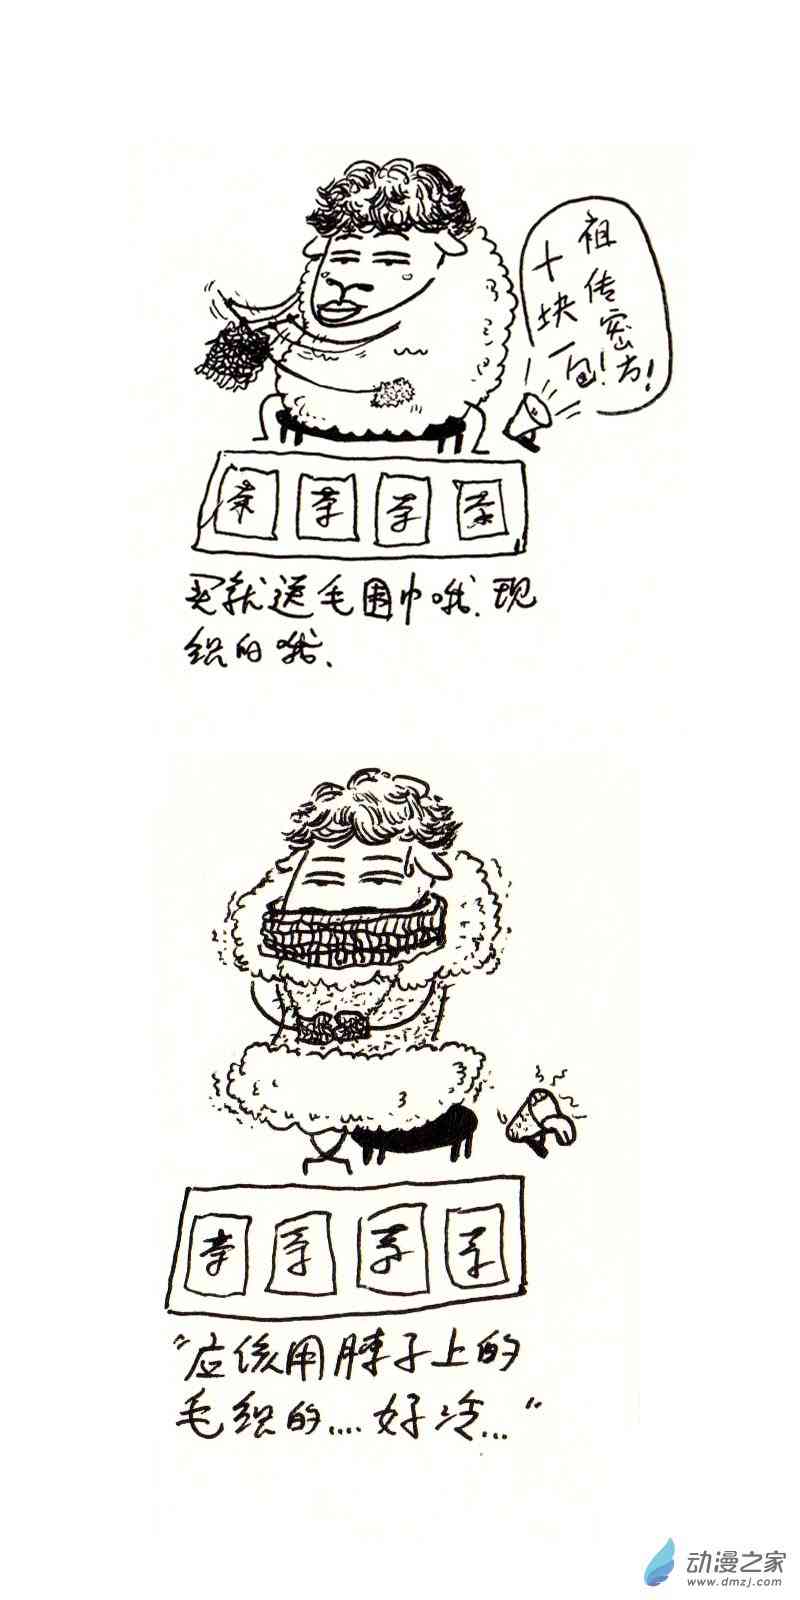 祖传密方!
十块一包!
茶 茶 茶 茶
买就送毛围巾哦.现
织的哦.
茶 茶 茶 茶
“应该用脖子上的
毛织的....好冷...”
动漫之家
www.dmzj.com